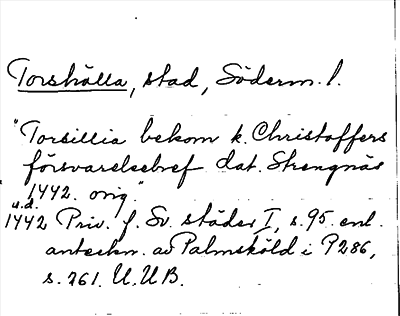 Torshälla, stad, Söderm. l.
"Torsillia bekom k. Christoffers
försvarelsebref dat. Strengnäs
1442. orig."
u.d.
1442 Priv. f. Sv. städer I, s. 95. enl.
anteckn. av Palmsköld i P286,
s. 261. U.U.B.